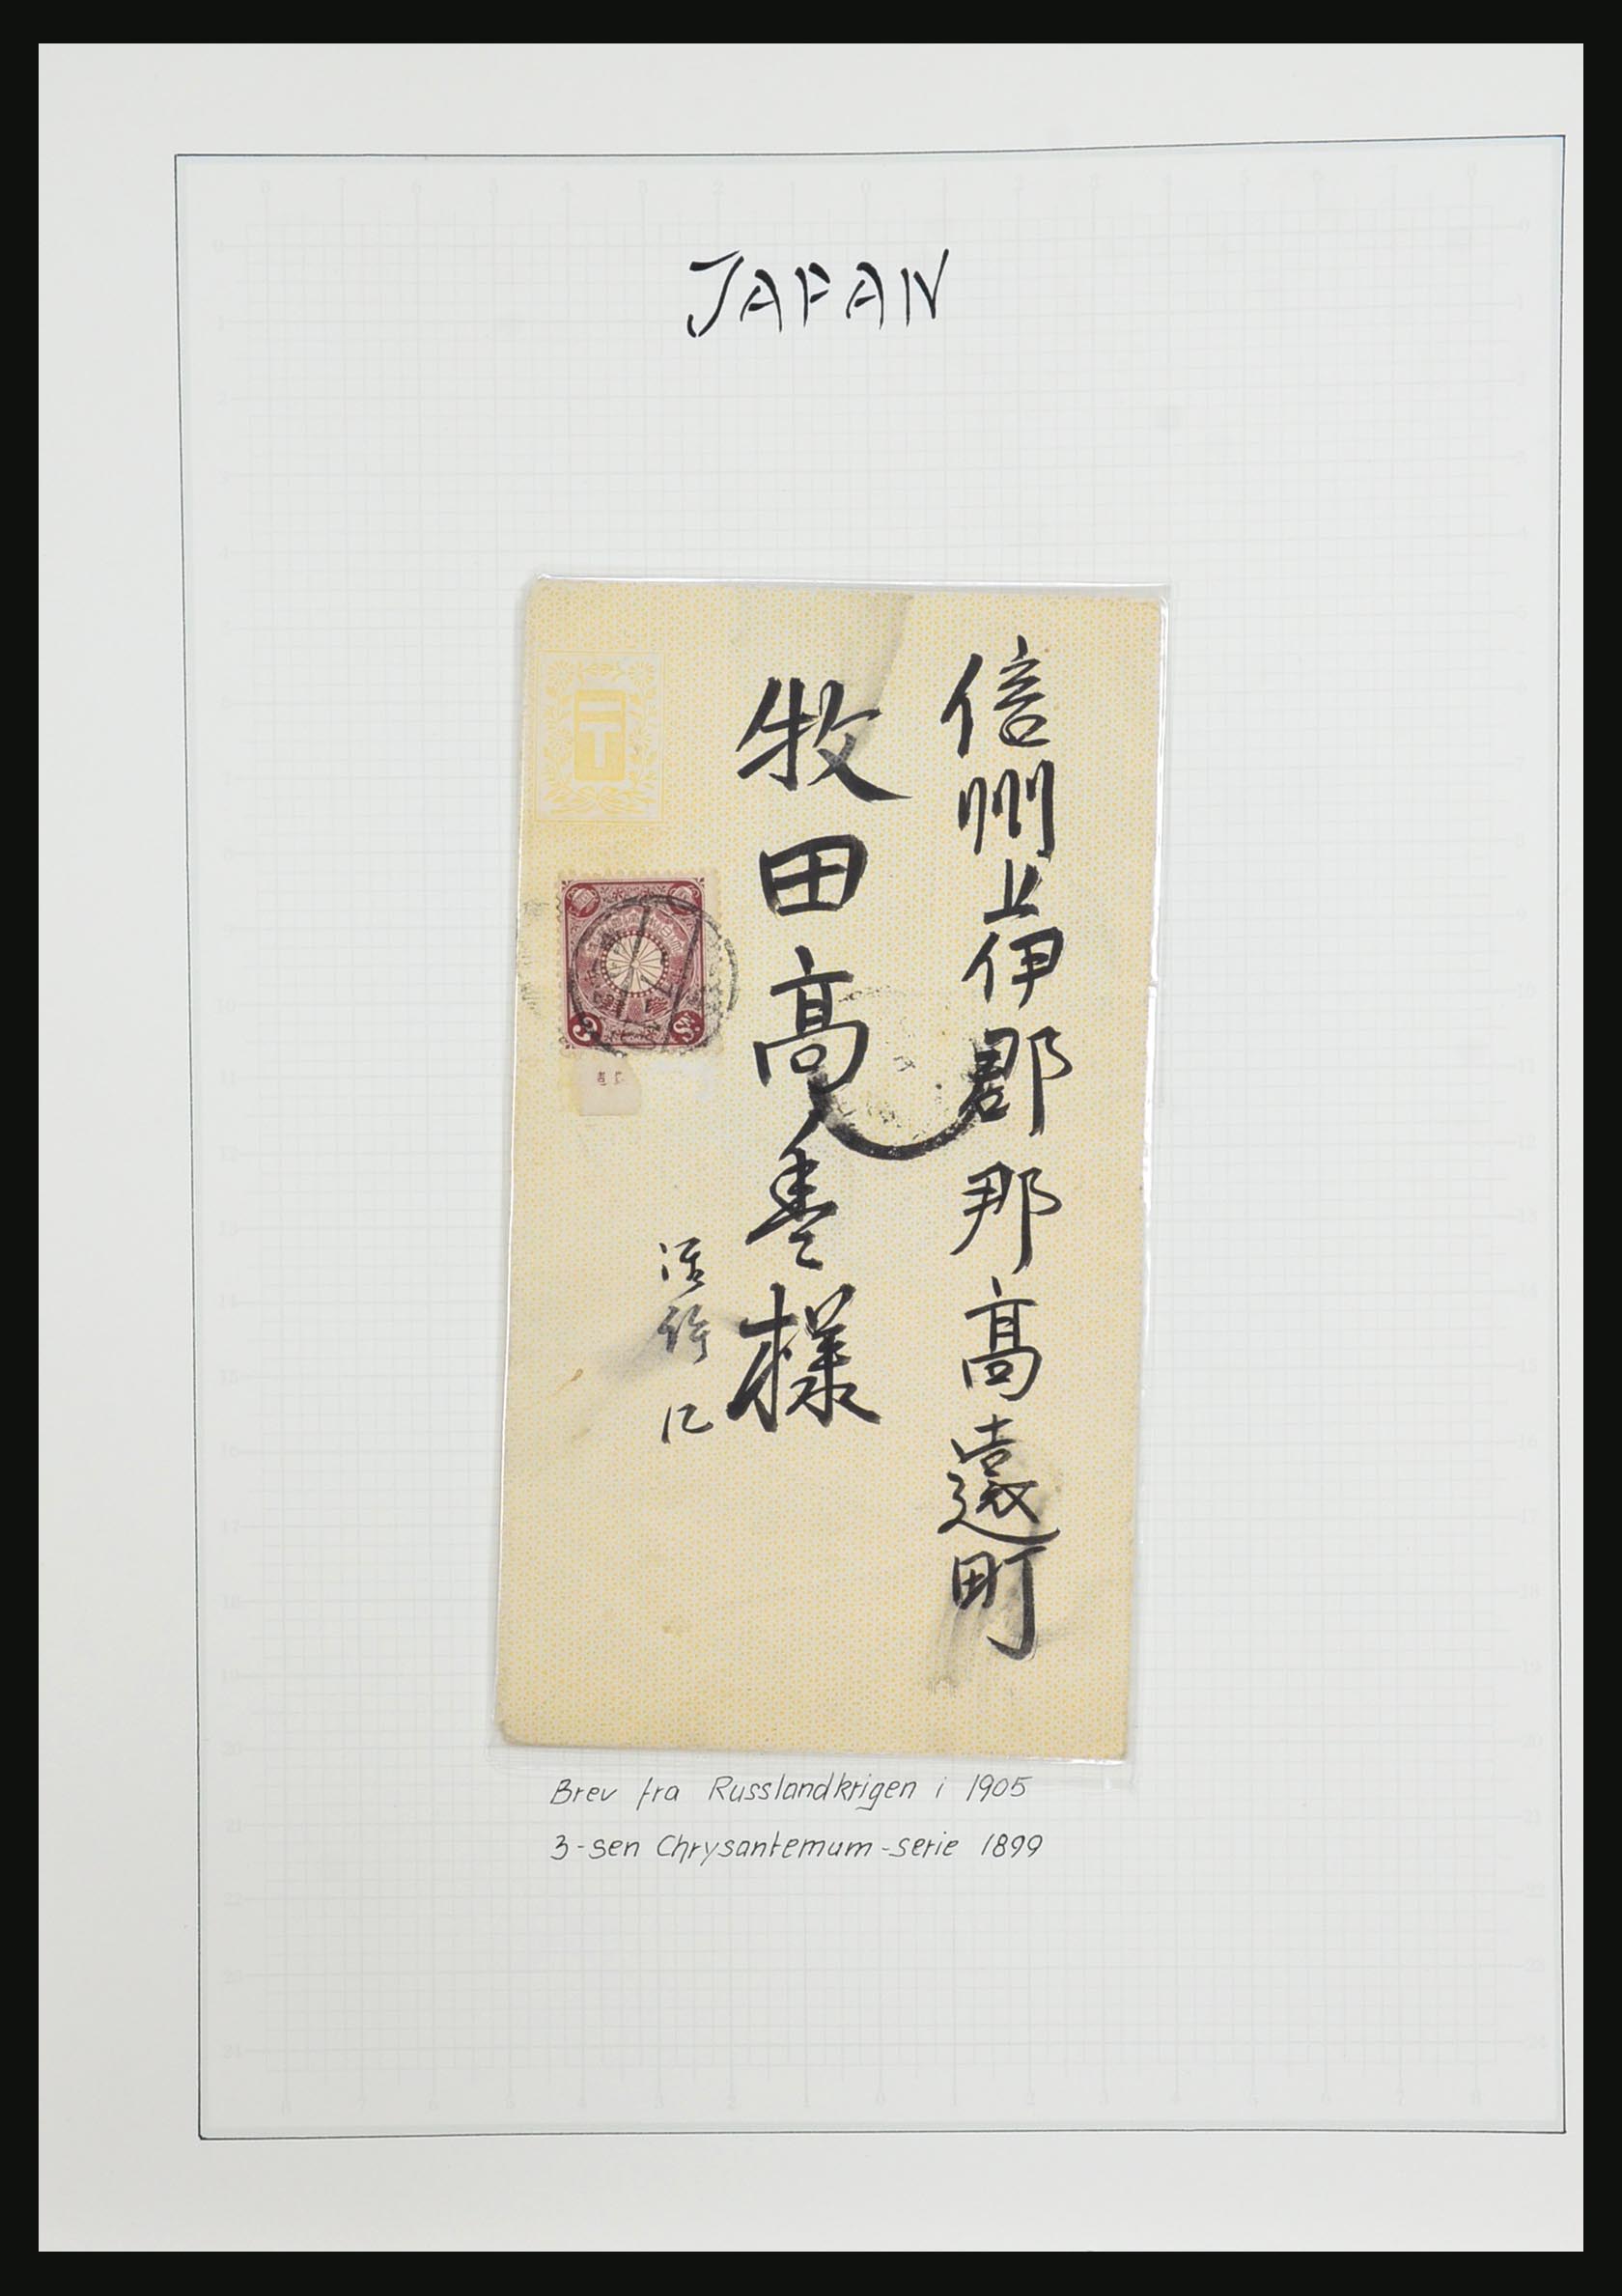 JAPAN
信州上伊那郡高遠町
牧田高壱様
Brev fra Russlandkrigen i 1905
3-sen Chrysantemum-serie 1899